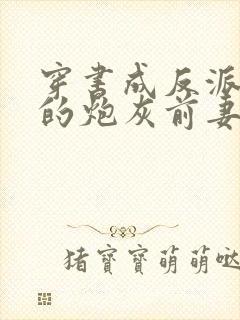 穿书成反派
的炮灰前妻
猪寶寶萌萌哒